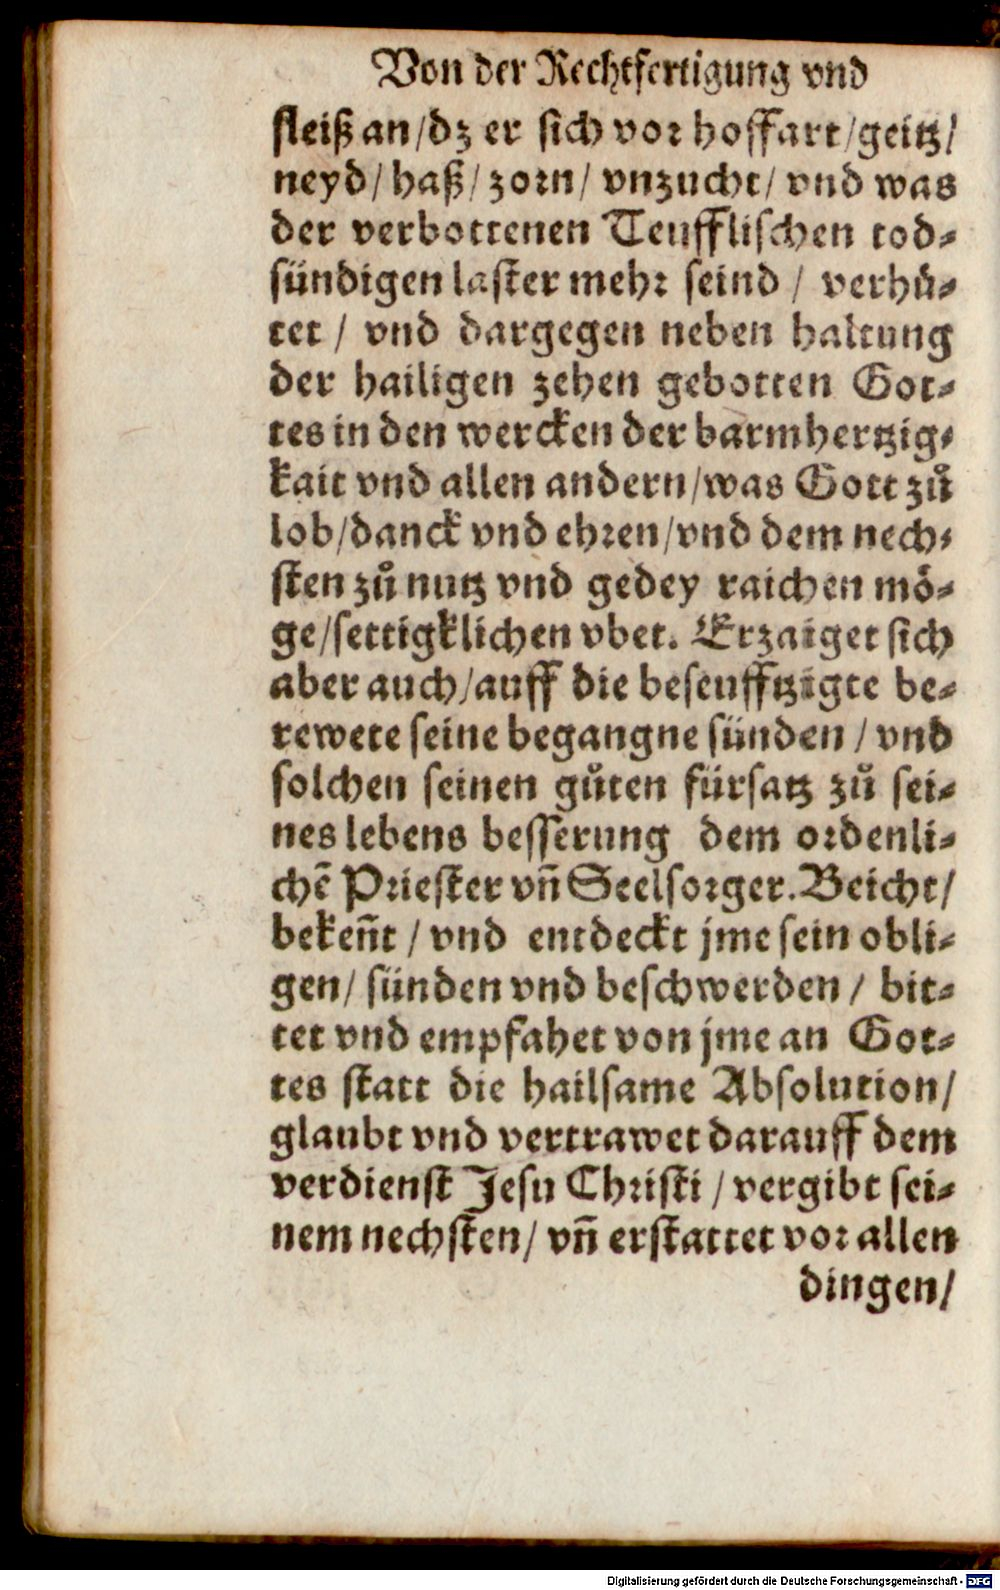 Von der Rechtfertigung vnd
fleiß an/dz er sich vor hoffart/geitz/
neyd/ haß/ zorn/ vnzucht/ vnd was
der verbottenen Teufflischen tod⸗
sündigen laster mehr seind / verhuͤ⸗
tet / vnd dargegen neben haltung
der hailigen zehen gebotten Got⸗
tes in den wercken der barmhertzig⸗
kait vnd allen andern/was Gott zuͦ
lob/danck vnd ehren/vnd dem nech⸗
sten zuͦ nutz vnd gedey raichen moͤ⸗
ge/settigklichen vbet. Erzaiget sich
aber auch/auff die beseufftzigte be⸗
rewete seine begangne sünden / vnd
solchen seinen guͦten fürsatz zuͦ sei⸗
nes lebens besserung dem ordenli⸗
chē Priester vn̄ Seelsorger. Beicht/
beken̄t / vnd entdeckt jme sein obli⸗
gen/ sünden vnd beschwerden / bit⸗
tet vnd empfahet von jme an Got⸗
tes statt die hailsame Absolution/
glaubt vnd vertrawet darauff dem
verdienst Jesu Christi / vergibt sei⸗
nem nechsten/ vn̄ erstattet vor allen
dingen/
Digitalisierung gefördert durch die Deutsche Forschungsgemeinschaft - DFG